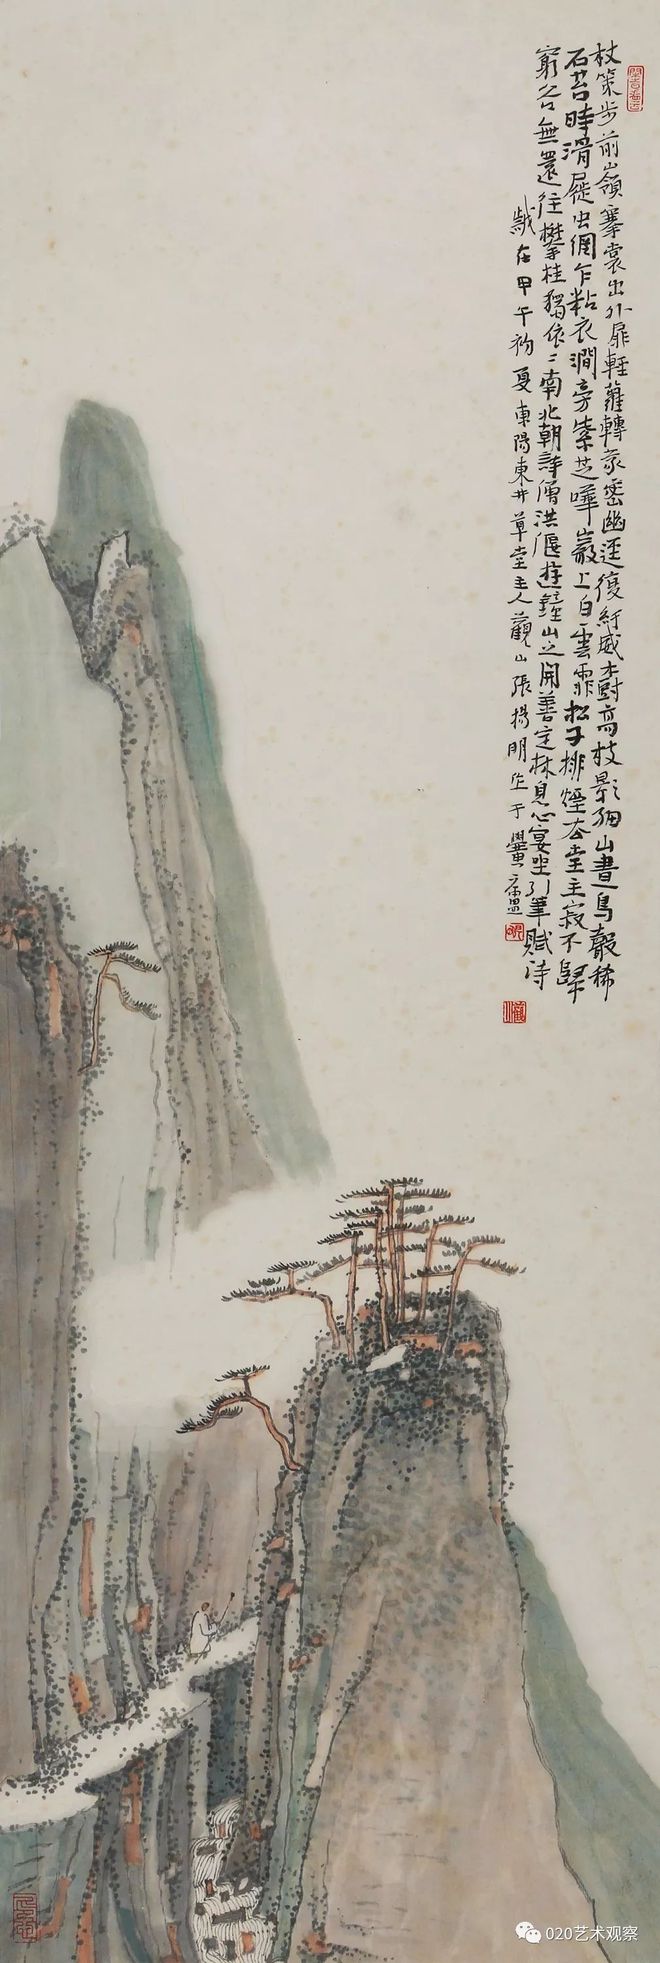 杖策步前嶺搴裳出外扉輕蘿轉蒙密幽逕復紆威樹高枝影細山晝鳥聲稀
石苔時滑屣虫網乍粘衣澗旁紫芝曄巖上白雲霏松子排煙去堂主寂不歸
窮谷無還往攀桂獨依〻南北朝詩僧洪偃遊鐘山之開善定林息心宴坐引筆賦詩
歲在甲午初夏東陽東井草堂主人觀山張揚明
020艺术观察